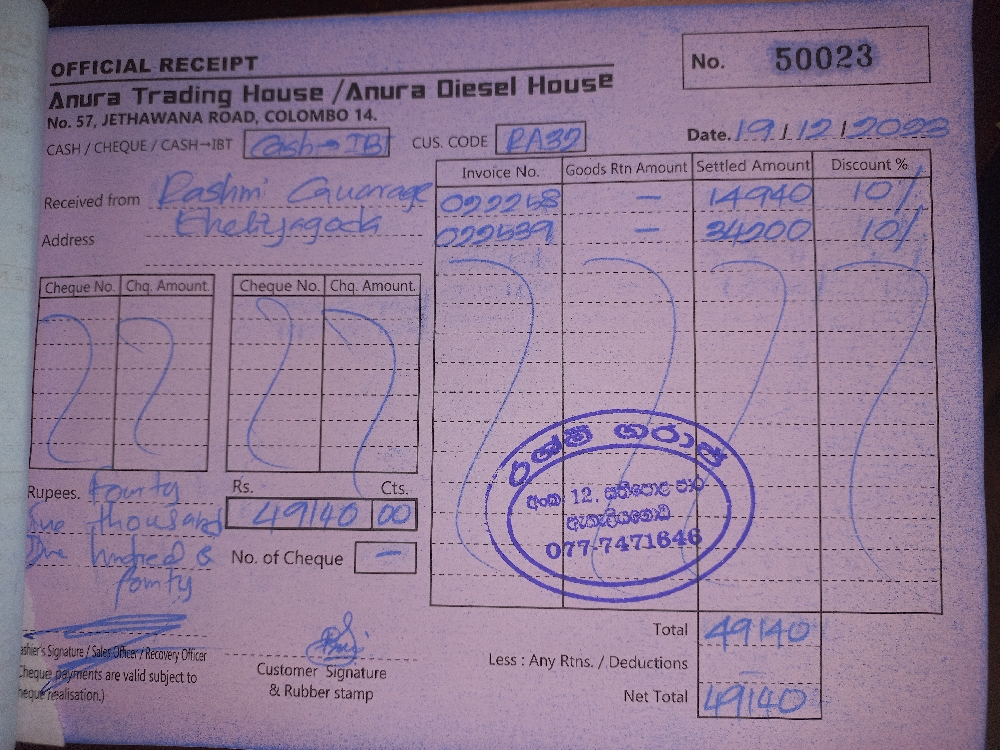 OFFICIAL RECEIPT
No. 50023
Anura Trading House / Anura Diesel House
No. 57, JETHAWANA ROAD, COLOMBO 14.
CASH / CHEQUE / CASH→IBT Cash→IBT CUS. CODE RA32 Date. 19/12/2023
Received from Rashmi Gaurage
Address Eheliyagoda
Invoice No. Goods Rtn Amount Settled Amount Discount %
022258 — 14940 10%
022539 — 34200 10%
Cheque No. Chq. Amount. Cheque No. Chq. Amount.
Rupees. Fourty
thousand
One hundred &
Fourty
Rs. Cts.
49140 00
No. of Cheque —
රශ්මි ගරාජ්
අංක 12,
ඇහැලියගොඩ
077-7471646
Total 49140
Less : Any Rtns. / Deductions —
Net Total 49140
ashier's Signature / Sales Officer / Recovery Officer
Cheque payments are valid subject to
heque realisation.)
Customer Signature
& Rubber stamp